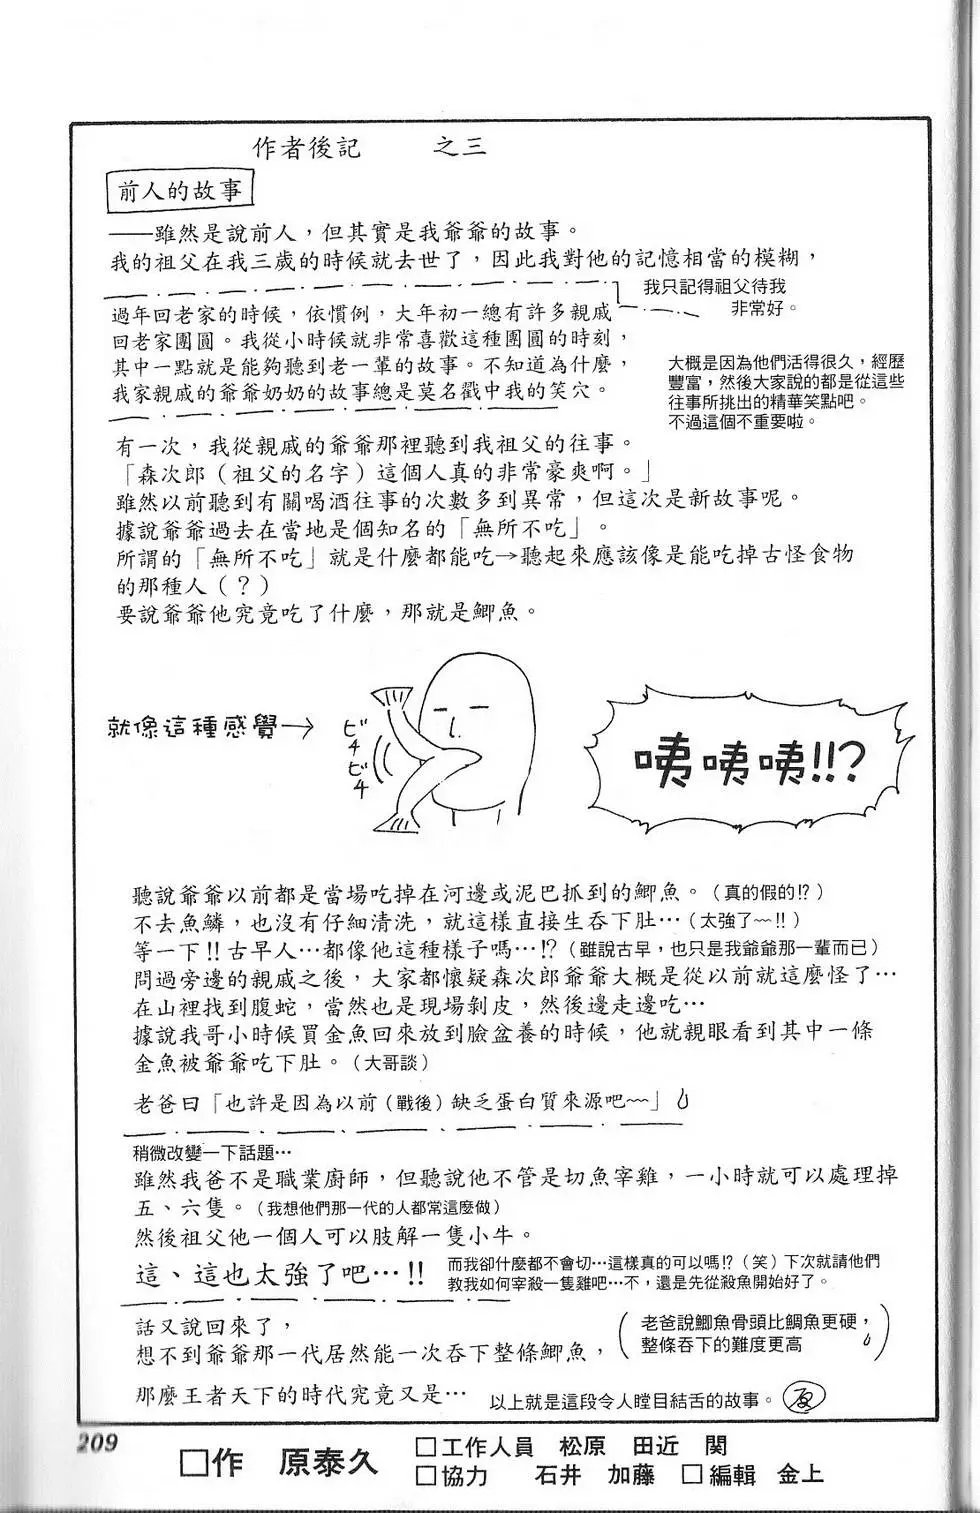 作者後記　之三
前人的故事
──雖然是說前人，但其實是我爺爺的故事。
我的祖父在我三歲的時候就去世了，因此我對他的記憶相當的模糊，
我只記得祖父待我
非常好。
過年回老家的時候，依慣例，大年初一總有許多親戚
回老家團圓。我從小時候就非常喜歡這種團圓的時刻，
其中一點就是能夠聽到老一輩的故事。不知道為什麼，
我家親戚的爺爺奶奶的故事總是莫名戳中我的笑穴。
大概是因為他們活得很久，經歷
豐富，然後大家說的都是從這些
往事所挑出的精華笑點吧。
不過這個不重要啦。
有一次，我從親戚的爺爺那裡聽到我祖父的往事。
「森次郎（祖父的名字）這個人真的非常豪爽啊。」
雖然以前聽到有關喝酒往事的次數多到異常，但這次是新故事呢。
據說爺爺過去在當地是個知名的「無所不吃」。
所謂的「無所不吃」就是什麼都能吃→聽起來應該像是能吃掉古怪食物
的那種人（？）
要說爺爺他究竟吃了什麼，那就是鯽魚。
就像這種感覺→
ビチビチ
咦咦咦!!?
聽說爺爺以前都是當場吃掉在河邊或泥巴抓到的鯽魚。（真的假的!?）
不去魚鱗，也沒有仔細清洗，就這樣直接生吞下肚…（太強了~~!!）
等一下!!古早人…都像他這種樣子嗎…!?（雖說古早，也只是我爺爺那一輩而已）
問過旁邊的親戚之後，大家都懷疑森次郎爺爺大概是從以前就這麼怪了…
在山裡找到腹蛇，當然也是現場剝皮，然後邊走邊吃…
據說我哥小時候買金魚回來放到臉盆養的時候，他就親眼看到其中一條
金魚被爺爺吃下肚。（大哥談）
老爸曰「也許是因為以前（戰後）缺乏蛋白質來源吧~~」
稍微改變一下話題…
雖然我爸不是職業廚師，但聽說他不管是切魚宰雞，一小時就可以處理掉
五、六隻。（我想他們那一代的人都常這麼做）
然後祖父他一個人可以肢解一隻小牛。
這、這也太強了吧…!!
而我卻什麼都不會切…這樣真的可以嗎!?（笑）下次就請他們
教我如何宰殺一隻雞吧…不，還是先從殺魚開始好了。
話又說回來了，
想不到爺爺那一代居然能一次吞下整條鯽魚，
（老爸說鯽魚骨頭比鯛魚更硬，
整條吞下的難度更高）
那麼王者天下的時代究竟又是…
以上就是這段令人瞠目結舌的故事。
209
□作　原泰久
□工作人員　松原　田近　関
□協力　石井　加藤　□編輯　金上